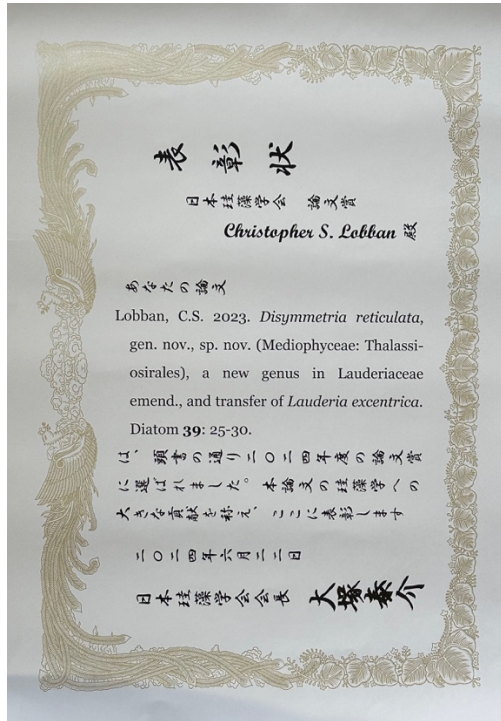 表彰状
日本珪藻学会 論文賞
Christopher S. Lobban 殿
あなたの論文
Lobban, C.S. 2023. Disymmetria reticulata,
gen. nov., sp. nov. (Mediophyceae: Thalassi-
osirales), a new genus in Lauderiaceae
emend., and transfer of Lauderia excentrica.
Diatom 39: 25-30.
は、頭書の通り二〇二四年度の論文賞
に選ばれました。本論文の珪藻学への
大きな貢献を称え、ここに表彰します
二〇二四年六月二二日
日本珪藻学会会長 大塚泰介